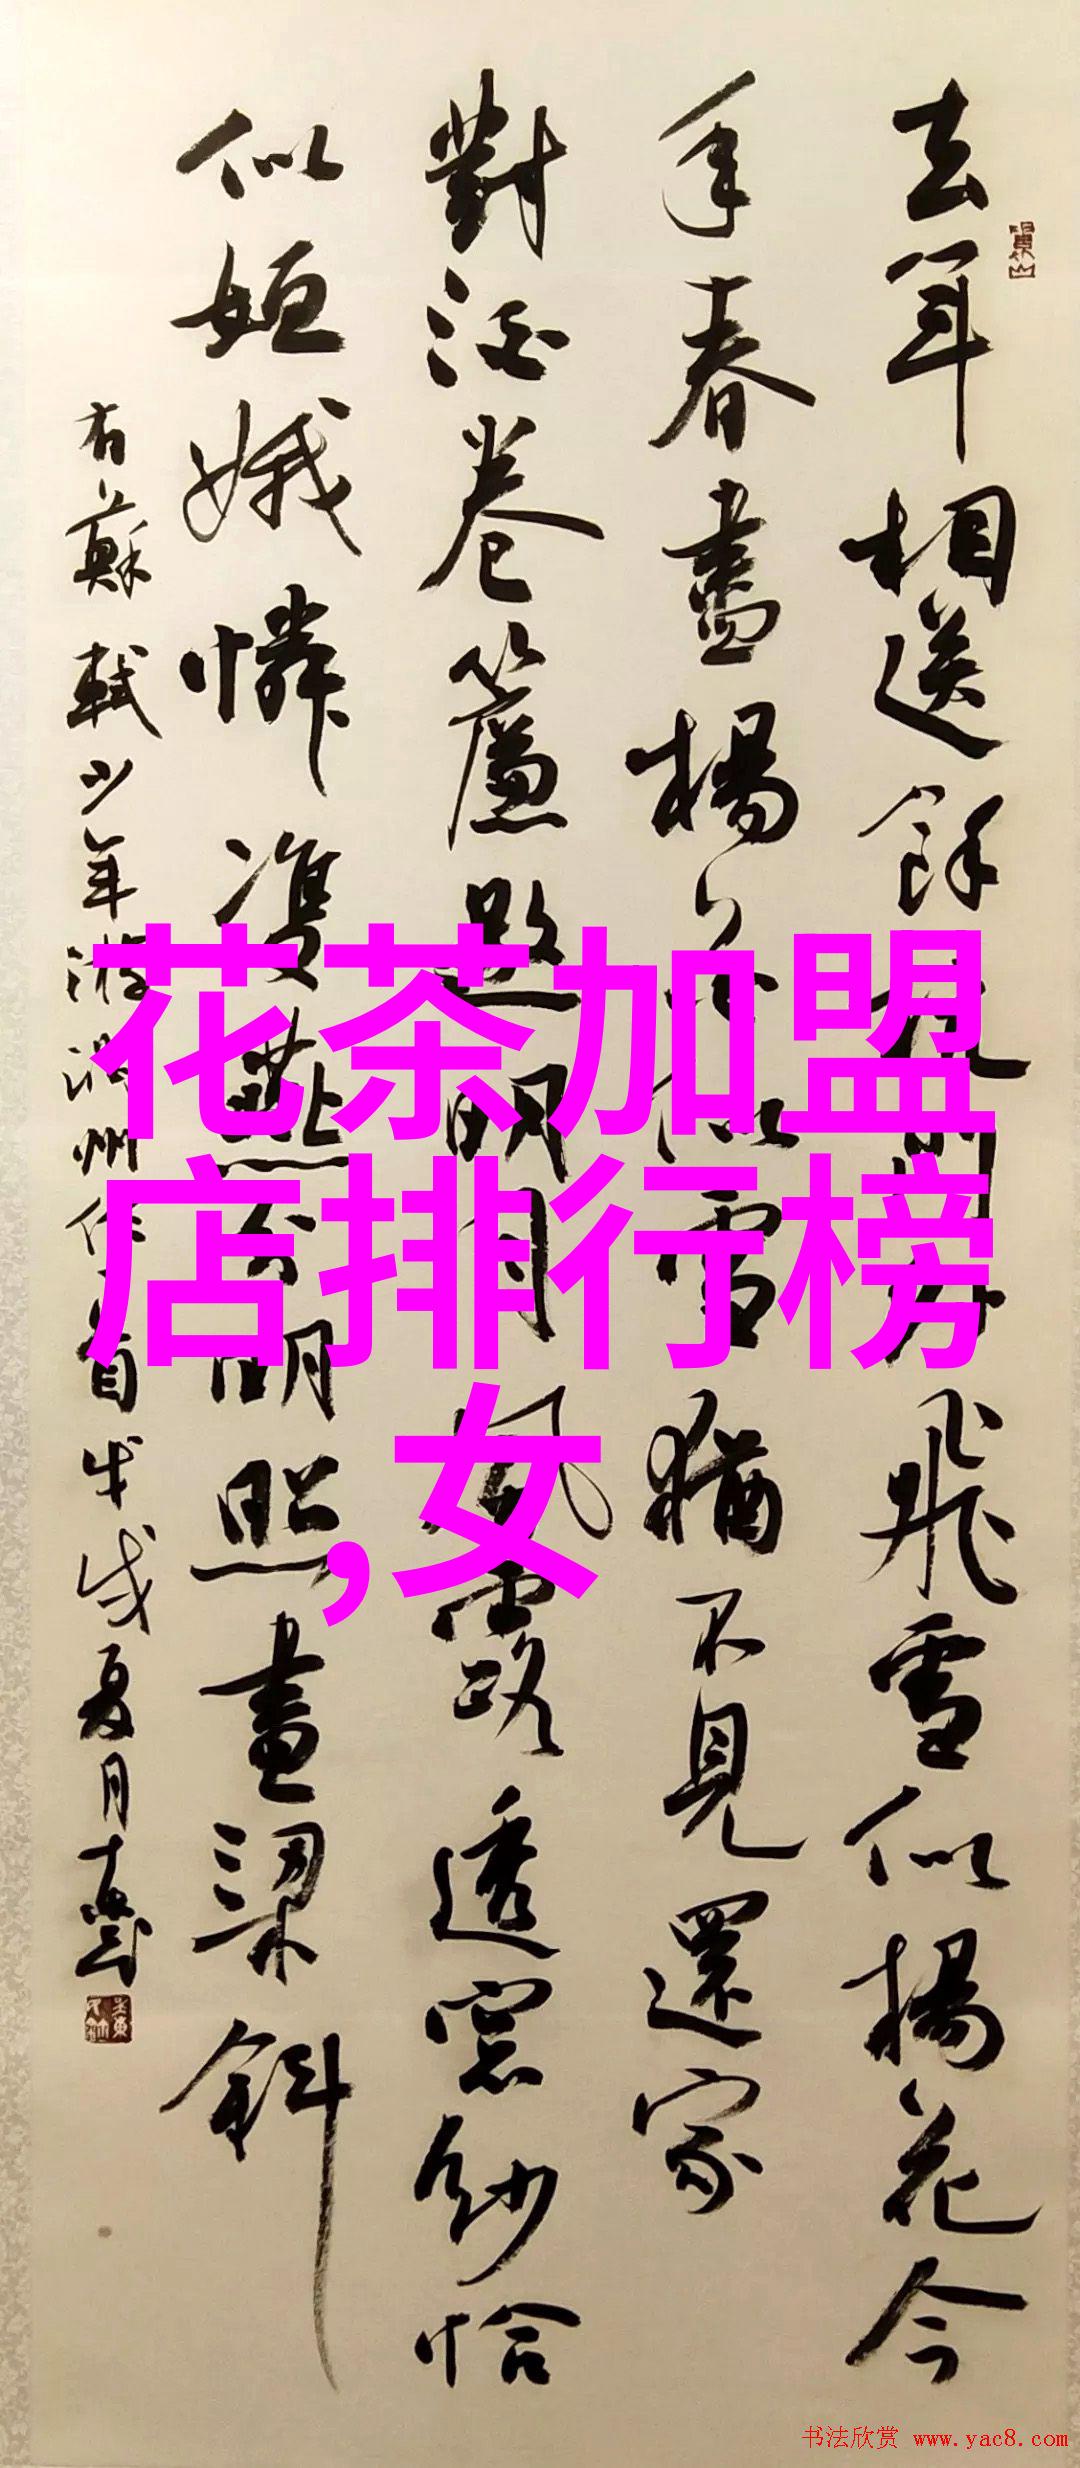 去年相送餘杭門外飛雪似楊花今
年春盡楊花似雪猶不見還家
對酒卷簾邀明月風露透窓紗恰
似姮娥憐雙燕分明照畫梁斜
右蘇軾少年游潤州作一首戊戌夏月
花茶加盟
店排行榜
,女
书法欣赏 www.yac8.com